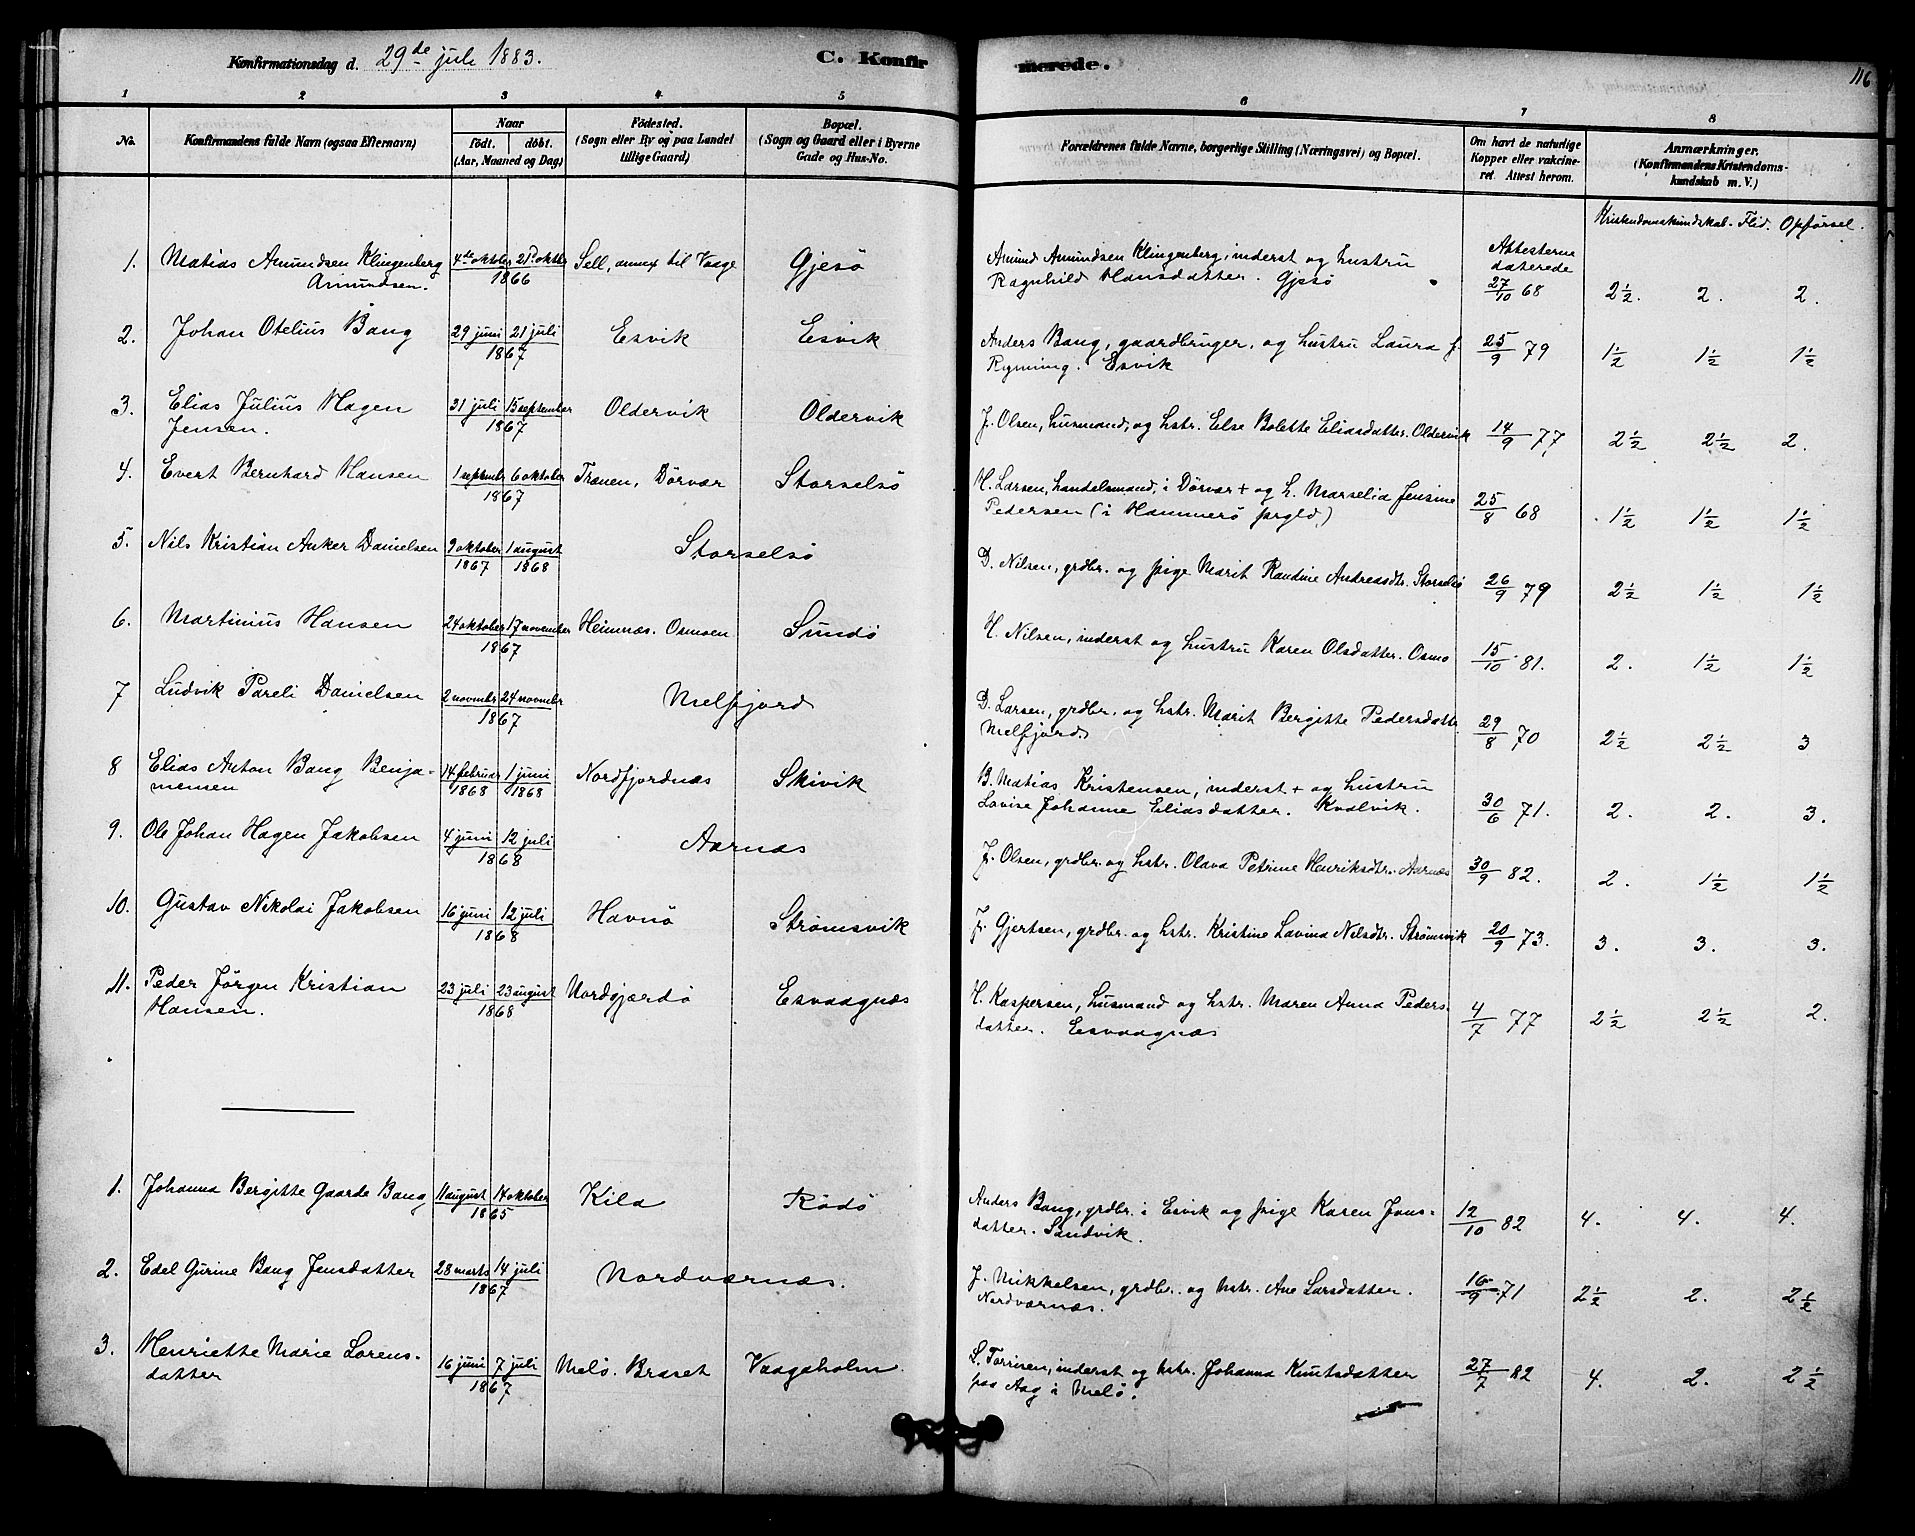 Konfirmationsdag d. 29de juli 1883. C. Konfirmerede. 116
1 2 3 4 5 6 7 8
No. Konfirmandens fulde Navn (ogsaa Efternavn) Naar født. døbt. (Aar, Maaned og Dag) Fødested. (Sogn eller By og paa Landet tillige Gaard) Bopæl. (Sogn og Gaard eller i Byerne Gade og Hus-No. Forældrenes fulde Navne, borgerlige Stilling (Næringsvei) og Bopæl. Om havt de naturlige Kopper eller vakcineret. Attest herom. Anmærkninger. (Konfirmandens Kristendomskundskab m. V.)
Kristendomskundskab. Flid. Opførsel.
1. Matias Amundsen Klingenberg Amundsen. 4de oktober 21de oktbr 1866 Sell, annex til Vaage Gjesø Amund Amundsen Klingenberg, inderst og hustru Ragnhild Hansdatter. Gjesø Attesterne daterede 27/10 68 2½. 2. 2.
2. Johan Otelius Bang 29 juni 21 juli 1867 Esvik Esvik Anders Bang, gaardbruger, og hustru Laura f. Ryrning. Esvik 25/9 79 1½ 1½ 1½
3. Elias Julius Hagen Jensen. 31 juli 15 september 1867 Oldervik Oldervik J. Olsen, husmand, og hstr. Else Bolette Eliasdatter. Oldervik 14/9 77, 2½ 2½ 2.
4. Evert Bernhard Hansen 1 septembr 6 oktober 1867 Trænen, Dørvær Storselsø H. Larsen, handelsmand, i Dørvær + og h. Marselia Jensine Pedersen (i Hammerø prgld.) 25/8 68 1½ 1½ 1½
5. Nils Kristian Anker Danielsen 9 oktober 1867 1 august 1868 Storselsø D. Nilsen, grdbr. og pige Marit Randine Andreasdtr. Storselsø 26/9 79 2½ 1½ 1½
6. Martinius Hansen 24 oktober 17 november 1867 Heimnæs. Osmoen Sundø H. Nilsen, inderst og hustru Karen Olsdatter. Osmo 15/10 81. 2. 1½ 1½
7 Ludvik Pareli Danielsen 2 novembr 24 novembr 1867 Melfjord D. Larsen, grdbr. og hstr. Marit Bergitte Pedersdattr Melfjord. 29/8 70 2½ 2½ 3
8 Elias Anton Bang Benjamensen 14 februar 1868 1 juni 1868 Nordfjordnæs Skivik B. Matias Kristensen, inderst + og hustru Lovise Johanne Eliasdatter. Kvalvik. 30/6 71. 2. 2. 3.
9. Ole Johan Hagen Jakobsen 4 juni 12 juli 1868 Aarnæs J. Olsen, grdbr. og hstr. Olava Petrine Henriksdtr. Aarnæs 30/9 82. 2. 1½ 1½
10. Gustav Nikolai Jakobsen 16 juni 12 juli 1868 Havnø Strømsvik J. Gjertsen, grdbr. og hstr. Kristine Lavina Nilsdtr. Strømsvik 20/9 73. 3. 3. 3.
11. Peder Jørgen Kristian Hansen. 23 juli 23 august 1868 Nordgjærdø Esvaagnæs H. Kaspersen, husmand og hstr. Maren Anna Pedersdatter. Esvaagnæs 4/7 77 2½ 2½ 2.
1. Johanna Bergitte Gaarde Bang 11 august 14 oktober 1865 Kila Rødø Anders Bang, grdbr. i Esvik og pige Karen Jonsdatter. Sandvik. 12/10 82 4. 4. 4.
2. Edel Gurine Bang Jensdatter 28 marts 14 juli 1867 Nordværnæs. J. Mikkelsen, grdbr. og hstr. Ane Larsdatter. Nordværnæs. 16/9 71 2½ 2. 2½
3. Henriette Marie Lorensdatter 16 juni 7 juli 1867 Melø. Braset Vaagaholm L. Torrisen, inderst og hstr. Johanna Knutsdatter paa Aag i Melø. 27/7 82 4. 2. 2½